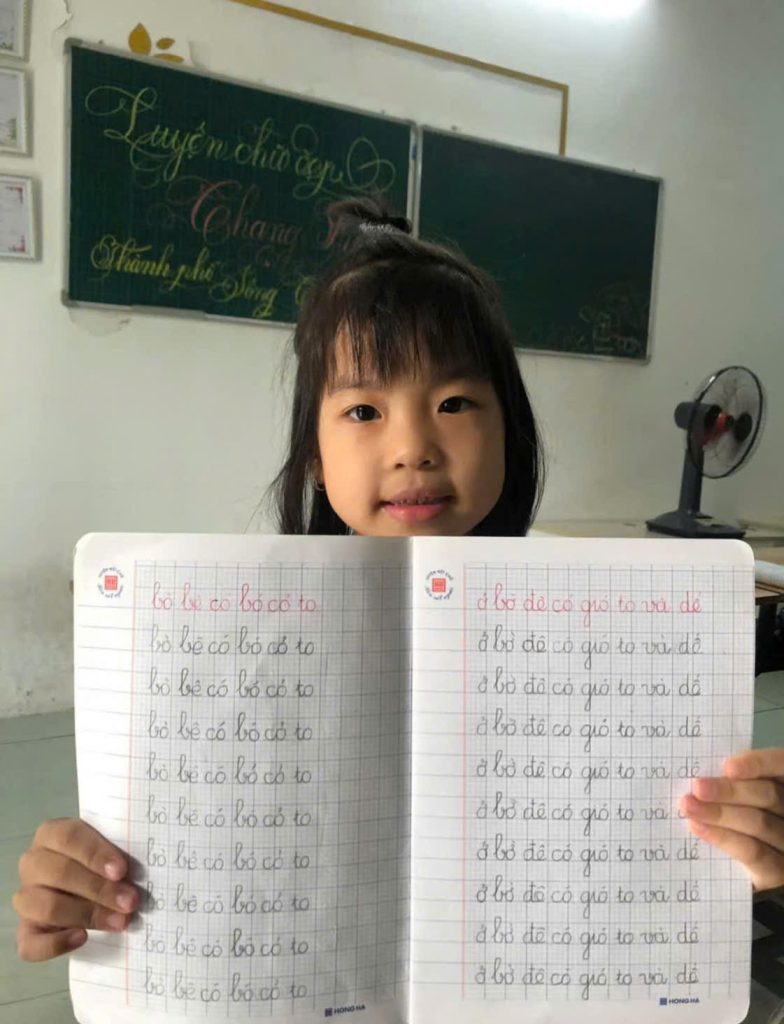 Luyện chữ đẹp
Chang
Thành phố Sông
bò bê có bó cỏ to
bò bê có bó cỏ to
bò bê có bó cỏ to
bò bê có bó cỏ to
bò bê có bó cỏ to
bò bê có bó cỏ to
bò bê có bó cỏ to
bò bê có bó cỏ to
bò bê có bó cỏ to
bò bê có bó cỏ to
HONG HA
ở bờ đê có gió to và dế
ở bờ đê có gió to và dế
ở bờ đê có gió to và dế
ở bờ đê có gió to và dế
ở bờ đê có gió to và dế
ở bờ đê có gió to và
ở bờ đê có gió to và dế
ở bờ đê có gió to và dế
ở bờ đê có gió to và dế
ở bờ đê có gió to và dế
HONG HA